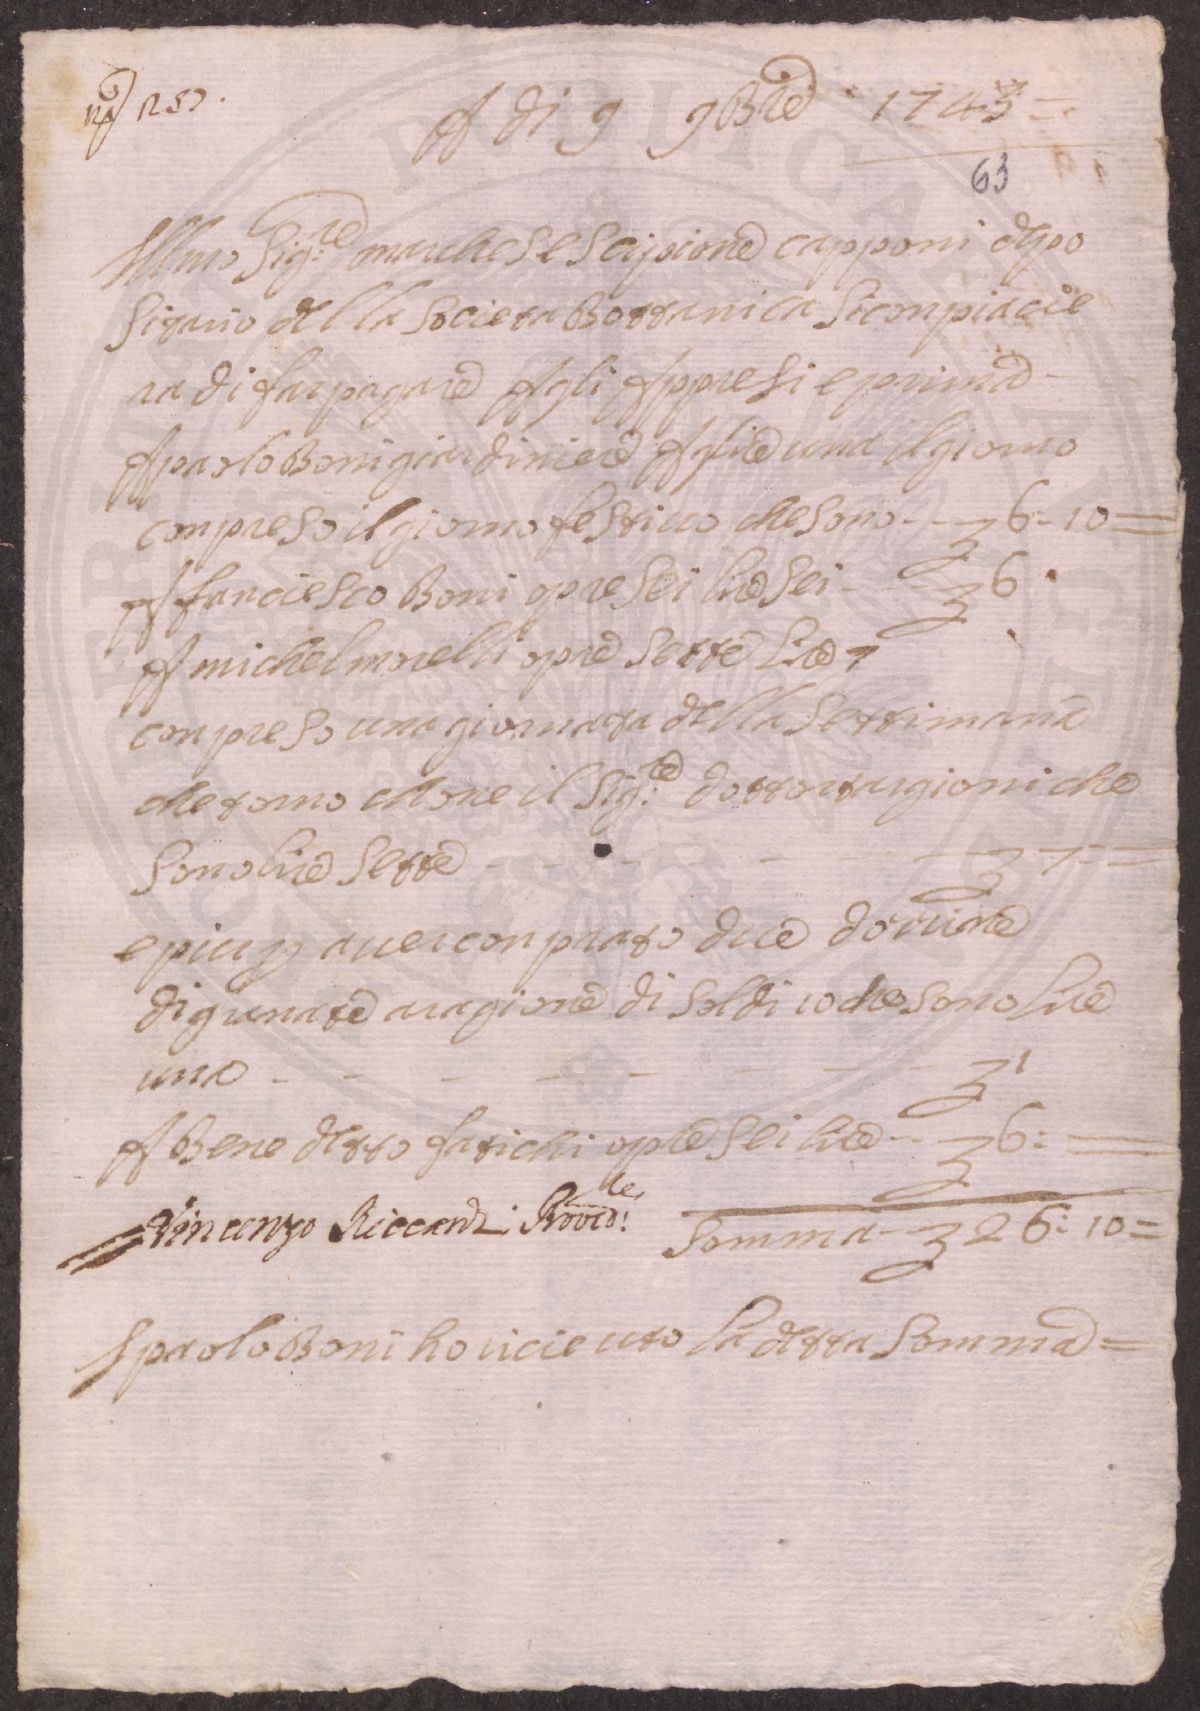 N.º 257.
A di 9 9bre 1743
63
Illmo Sig.re marchese Scipione capponi depo
Sitario della Societa Bottanica Si conpiacie
ra di far pagare Agli Appresi e prima
A paolo Boni giardiniere A lire una il giorno
conpreso il giorno festivo che sono - - £ 6 - 10 =
A franciesco Boni opre Sei lire Sei - - £ 6
A michel morelli opre Sette Lire 7
conpreso una giornata della Settimana
che torno chone il Sig.re dottor targioni che
Sono lire Sette - - - - - - £ 7 : =
e piu per aver conprato due
di granate a ragione di Soldi 10 che sono lire
una - - - - - - - £ 1
A Bene detto fatichi opre Sei lire - - £ 6 : =
Vincenzo Riccardi Provved.re
Somma - £ 26 : 10 =
I paolo Boni ho ricieuto la detta Somma =